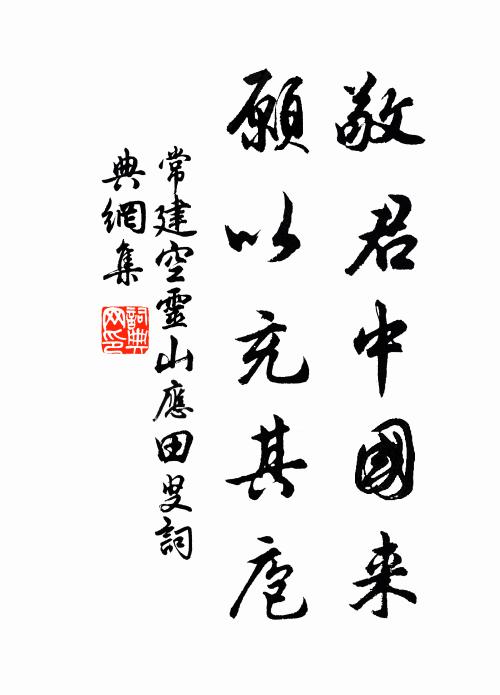 敬君中國来
願以充其庖
常建空靈山應田叟詞
典網集
詞典网印